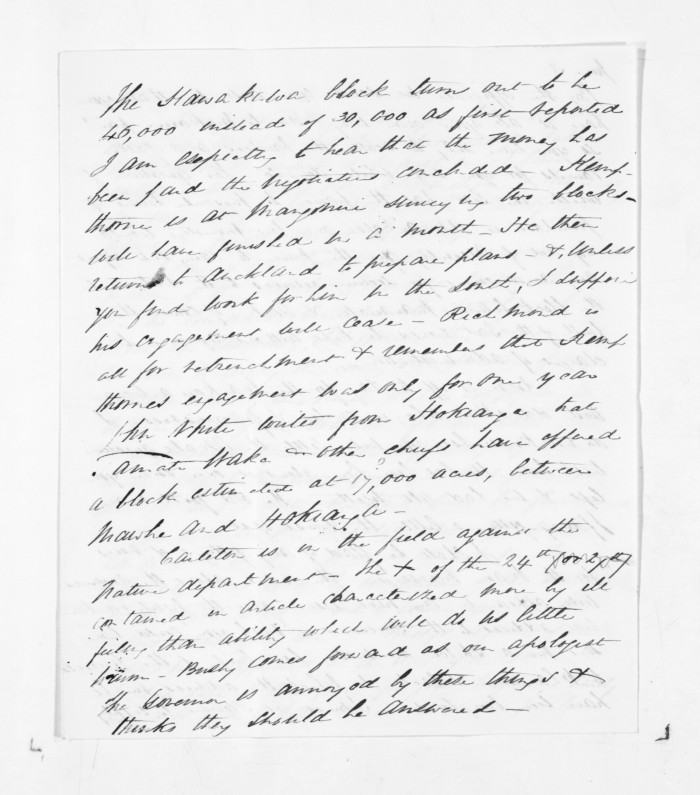 The Hawakawa block turns out to be
45,000 instead of 30,000 as first reported
I am expecting to hear that the money has
been paid the negotiations concluded - Kemp-
thorne is at Mangonui surveying two blocks -
will have finished in a month - He then
returns to Auckland to prepare plans - &, unless
you find work for him in the South, I suppose
his engagement will cease - Richmond is
all for retrenchment & remembers that Kemp
thornes engagement was only for one year
John White writes from Hokianga that
Tamati Waka & other chiefs have offered
a block estimated at 17,000 acres, between
Mawhe and Hokianga -
Carleton is in the field against the
Native department - The + of the 24th
contained an article characterized more by ill
feeling than ability which will do us little
harm - Busby comes forward as our apologist
The Governor is annoyed by these things &
thinks they should be answered -